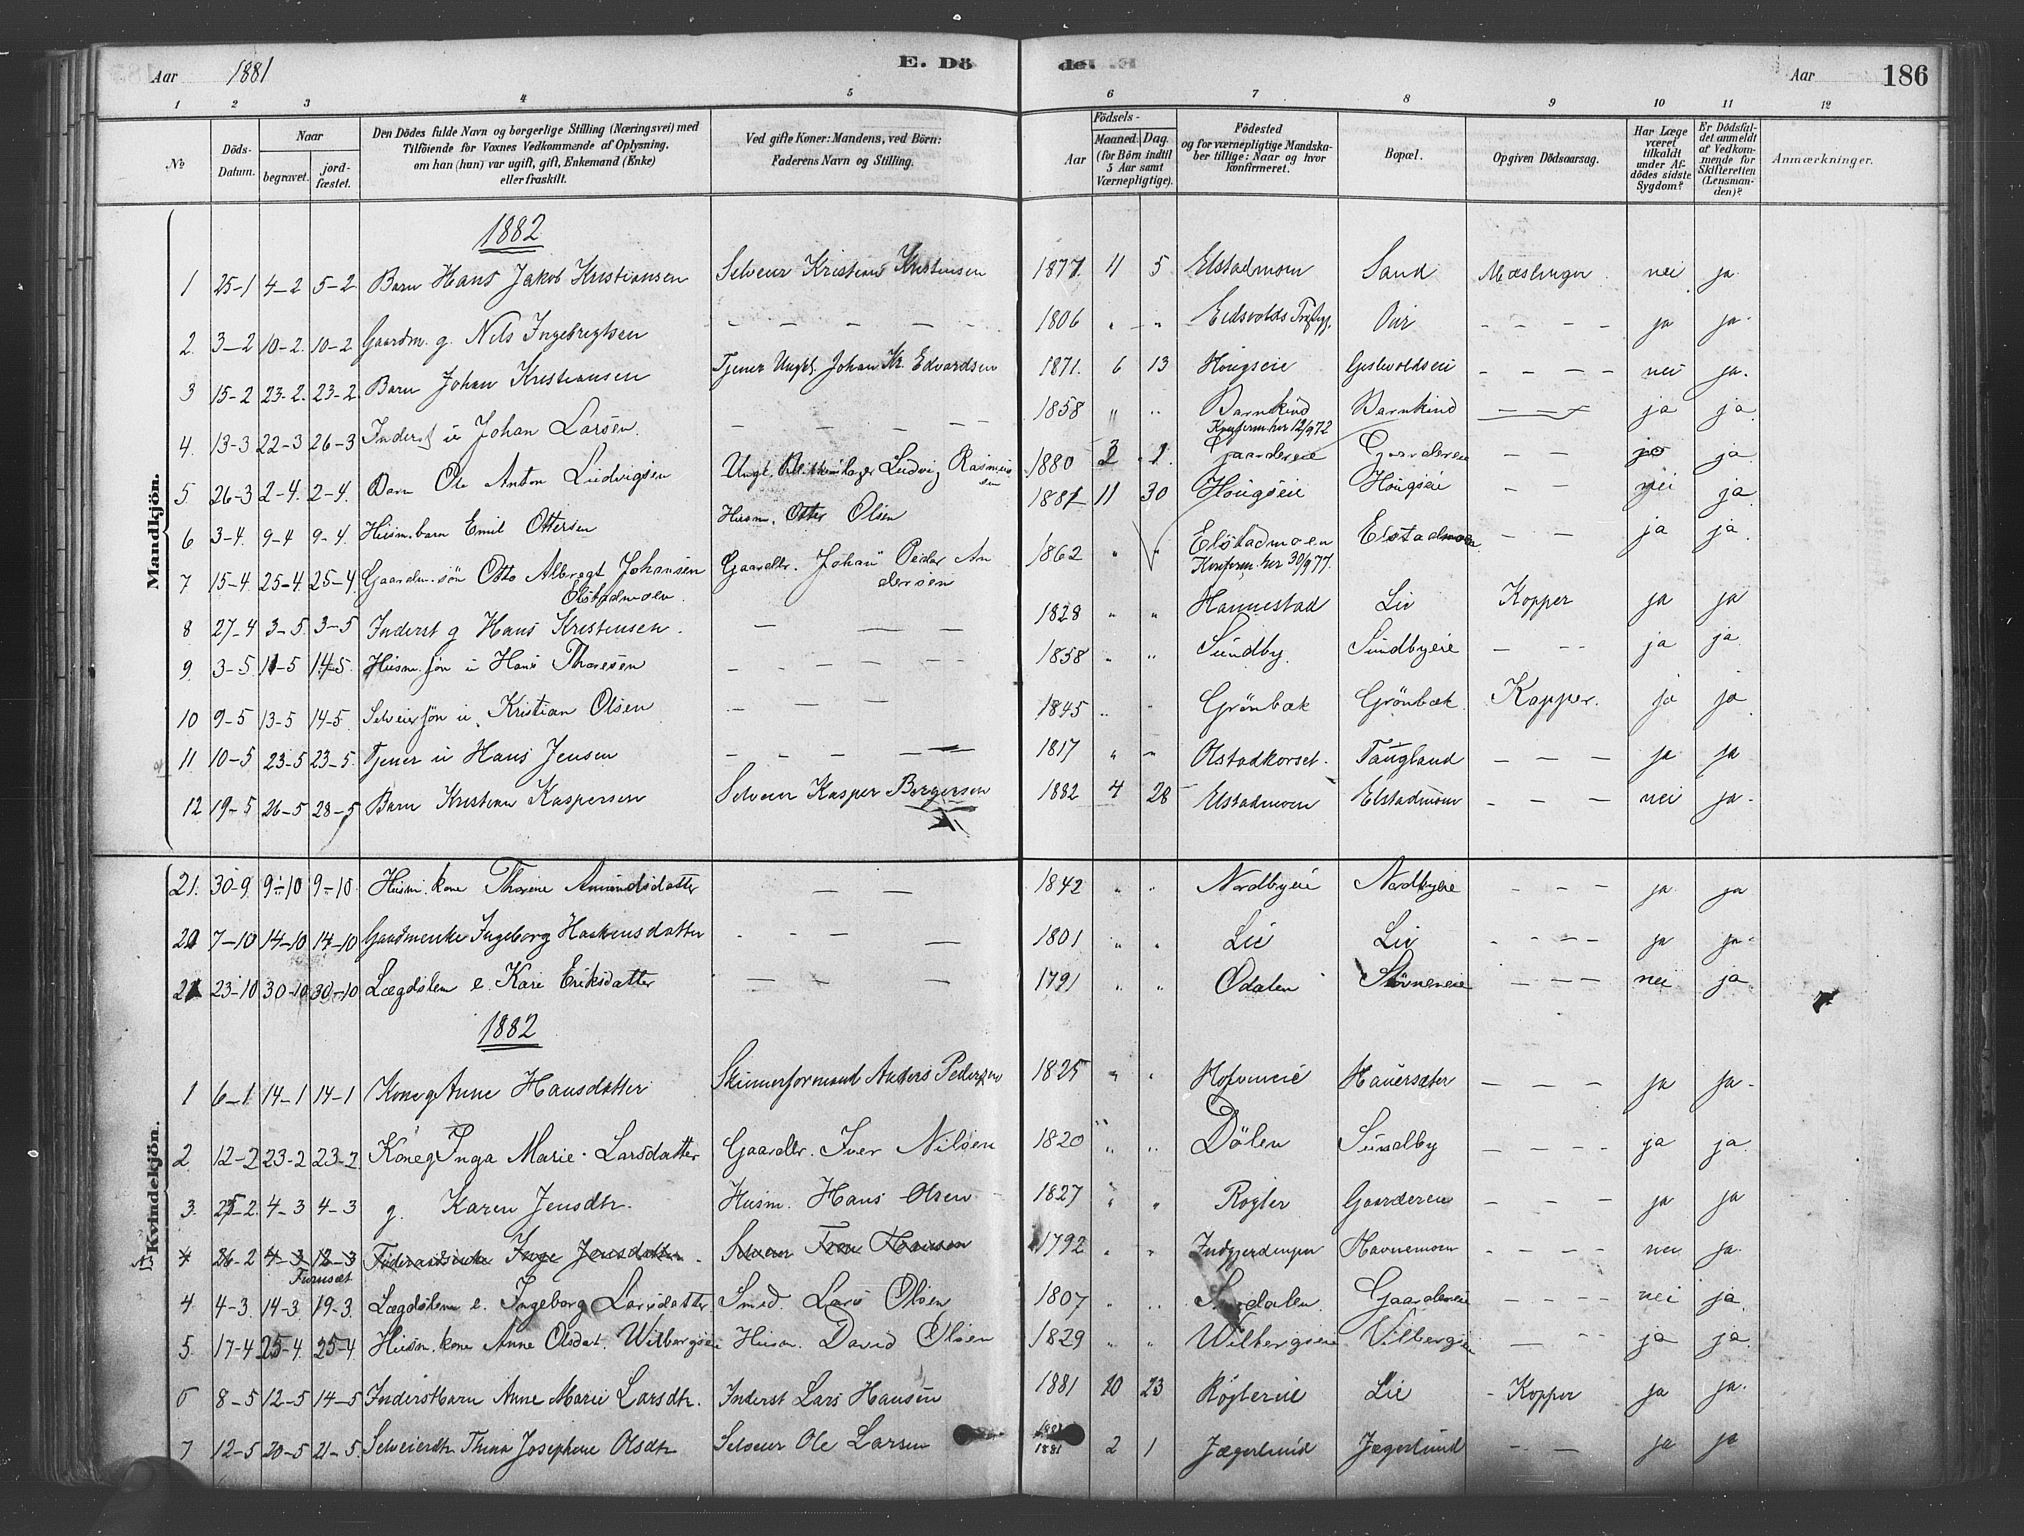 Aar 1881 E. Dö de. Aar 186
1 2 3 4 5 6 7 8 9 10 11 12
No Döds-Datum. Naar begravet. jord-fæstet. Den Dödes fulde Navn og borgerlige Stilling (Næringsvei) med Tilföiende for Voxnes Vedkommende af Oplysning, om han (hun) var ugift, gift, Enkemand (Enke) eller fraskilt. Ved gifte Koner: Mandens, ved Börn: Faderens Navn og Stilling. Födsels- Aar Maaned. Dag. (for Börn indtil 5 Aar samt Værnepligtige). Födested og for værnepligtige Mandskaber tillige: Naar og hvor konfirmeret. Bopæl. Opgiven Dödsaarsag. Har Læge været tilkaldt under Afdödes sidste Sygdom? Er Dödsfaldet anmeldt af Vedkommende for Skifteretten (Lensmanden)? Anmærkninger.
Mandkjön.
1882
1 25-1 4-2 5-2 Barn Hans Jakob Kristiansen Selveier Kristian Kristensen 1877 11 5 Elstadmoen Sand Mæslinger nei ja
2. 3-2 10-2. 10-2 Gaardm. g. Nils Ingebregtsen — — — — — 1806 " " Eidsvolds - - - - ja ja.
3 15-2 23-2. 23-2. Barn Johan Kristiansen Tjener Ungk. Johan Kr. Edvardsen 1871. 6 13 Hougseie Gislevoldseie - - - - nei ja.
4. 13-3 22-3 26-3 Inderst u Johan Larsen. — — — — 1858 " " Barnkind Barnkind - - - ja ja
Konferm. her 12/972
5 26-3 2-4. 2-4. Barn Ole Anton Ludvigsen Ungk. Ludvig Rasmus 1880 2 1. Gaardereie Gaardereie - - ja
sen
6 3-4. 9-4 9-4. Husm. barn Emil Ottersen Husm. Otter Olsen 1881 11 30 Hougseie Hougseie - - nei ja
7 15-4 25-4. 25-4. Gaardm. sön Otto Albregt Johansen Gaardbr. Johan Peder An 1862 " " Elstadmoen Elstadmoen - - ja ja.
Elstadmoen. dersen Konferm. her 30/977.
8 27-4 3-5. 3-5 Inderst g Hans Kristensen. — — — 1828 " " Hannestad Lie Kopper ja ja
9. 3-5. 11-5 14-5. Husm. sön u Hans Thoresen - - - - - 1858 " " Sundby. Sundbyeie - - - ja ja.
10 9-5 13-5 14-5. Selveiersön u. Kristian Olsen — — — — 1845 " " Grönbæk Grönbæk. Kopper. ja ja
11. 10-5 23-5 23-5. Tjener u Hans Jensen — — — — — 1817 " " Olstadkorset. Taugland - - - ja ja
12 19-5 26-5 28-5 Barn Kristian Kaspersen Selveier Kasper Borgersen 1882 4 28 Elstadmoen Elstadmoen - - - nei ja.
Kvindekjön.
21. 30-9. 9-10 9-10. Husm. kone Thorine Amundsdatter — — — 1842 " " Nordbyeie Nordbyeie - - - ja ja
7-10 14-10 14-10 Gaardmenke Ingeborg Haakensdatter - - - — 1801 " " Lie Lie - - - - ja ja.
23-10 30-10 30-10 Lægdslem e. Kari Eriksdatter — — — 1791 " " Odalen Störneeie - - - nei ja.
1882
1 6-1. 14-1 14-1 Kone g Anne Hansdatter Skinnerformand Anders Pedersen 1825 " " Hofvineie Hauersæter - - - ja ja.
2. 12-2 23-2 23-2 Kone g Inga Marie Larsdatter Gaardbr. Iver Nilsen 1820 " " Dölen Sundby - - - - ja ja.
3. 25-2. 4-3 4-3 g. Karen Jensdtr. Husm. Hans Olsen 1827 " " Rögler Gaardereie - - - ja ja
4 26-2 4-3 12-3 Föderaadsenke Inge Jensdatter. Selveier 1792 " " Havnemoen - - - nei ja.
4 4-3. 14-3. 19-3. Lægdslem e. Ingeborg Larsdatter Smed. Lars Olsen 1807 " " Gaardereie - - - - nei ja.
5. 17-4 25-4. 25-4 Husm. kone Anne Olsdat. Wilbergseie Husm. David Olsen 1829 " " Wilbergseie Vilbergseie — - - ja ja.
6 8-5 12-5 14-5 Inderst barn Anne Marie Larsdtr. Inderst Lars Hansen 1881 10 23 Röglereie Lie Kopper ja ja.
7 12-5 20-5 21-5. Selveierdtr Thina Josephine Olsdtr Selveier Ole Larsen 1881 2 1 Jægerlund Jægerlund - - ja ja